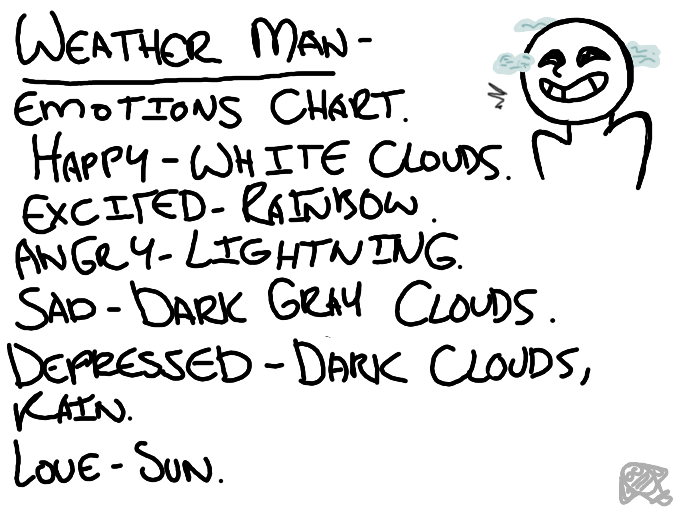 WEATHER MAN-
EMOTIONS CHART.
HAPPY-WHITE CLOUDS.
EXCITED-RAINBOW.
ANGRY-LIGHTNING.
SAD-DARK GRAY CLOUDS.
DEPRESSED-DARK CLOUDS,
RAIN.
LOVE-SUN.